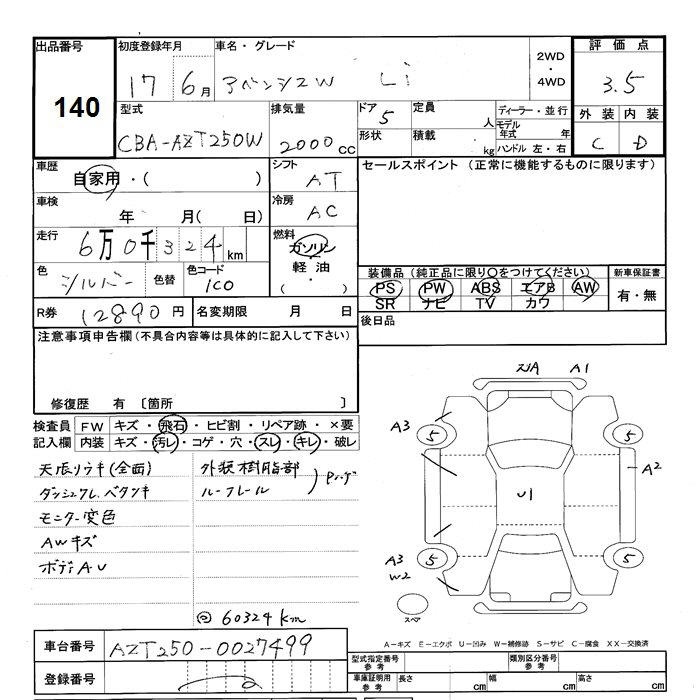 出品番号
140
初度登録年月
17 6月
車名・グレード
アベンシスW Li
2WD
・
4WD
評価点
3.5
外装 内装
C D
型式
CBA-AZT250W
排気量
2000cc
ドア
5
形状
定員
人
積載
kg
ディーラー・並行
モデル年式 年
ハンドル 左・右
車歴
自家用・( )
シフト
AT
セールスポイント (正常に機能するものに限ります)
車検
年 月( 日)
冷房
AC
走行
6万0千324km
燃料
ガソリン
軽油
( ・ )
色
シルバー
色替
色コード
1C0
装備品 (純正品に限り○をつけてください)
PS PW ABS エアB AW
SR ナビ TV カワ
新車保証書
有・無
R券
12890円
名変期限 月 日
後日品
注意事項申告欄(不具合内容等は具体的に記入して下さい)
修復歴 有 〔箇所 〕
検査員記入欄
FW キズ・飛石・ヒビ割・リペア跡・×要
内装 キズ・汚レ・コゲ・穴・スレ・キレ・破レ
天張りウキ(全面)
ダッシュクレ.ベタツキ
モニター変色
AWキズ
ボディAU
外装樹脂部
ルーフレール
◎ 60324km
A1
A3
5
5
A2
U1
A3
W2
5
5
スペア
A－キズ E－エクボ U－凹み W－補修跡 S－サビ C－腐食 XX－交換済
車台番号
AZT250-0027499
登録番号
型式指定番号
参考
類別区分番号
参考
車庫証明用
参考
長さ cm
幅 cm
高さ cm